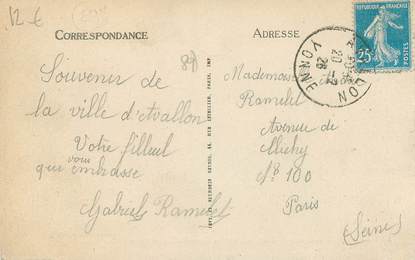 12 €
CORRESPONDANCE
ADRESSE
REPUBLIQUE FRANÇAISE
25c
POSTES
YONNE
20
26
89
Souvenir de
la ville d'Avallon
Votre filleul
qui vous embrasse
Gabriel Ramelet
Mademoiselle
Ramelet
Avenue de
Clichy
No 100
Paris
(Seine)